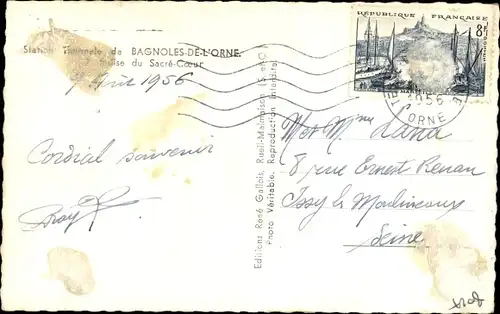 Station Thermale de BAGNOLES-DE-L'ORNE
Eglise du Sacré-Cœur
7 Août 1956
Cordial souvenir
Editions René Gallois, Rueil-Malmaison (S.-et-O.)
Photo Véritable. Reproduction interdite
REPUBLIQUE FRANÇAISE
8F
1956
ORNE
M et Mme Lana
8 rue Ernest Renan
Issy les Moulineaux
Seine